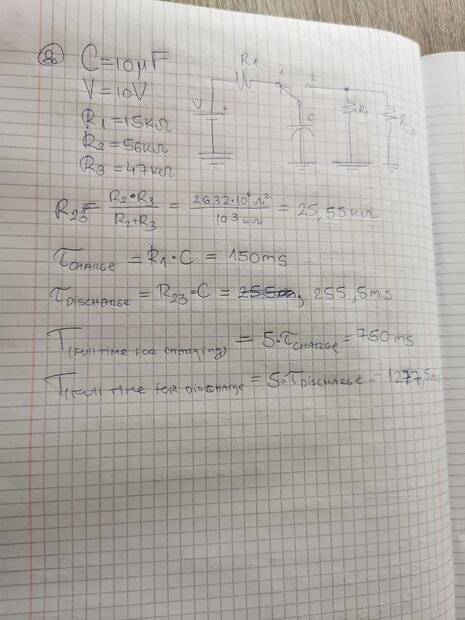 8) C=10μF
V=10V
R1=15kΩ
R2=56kΩ
R3=47kΩ
R1
1
2
V
+
C
R2
R3
R23= R2•R3 / R2+R3 = 2632•10⁶Ω² / 103kΩ = 25,55kΩ
τCHARGE = R1•C = 150ms
τDISCHARGE = R23•C = 255,5ms
T(FULL TIME FOR CHARGING) = 5•τCHARGE = 750ms
T(FULL TIME FOR DISCHARGE = 5•τDISCHARGE = 1277,5ms